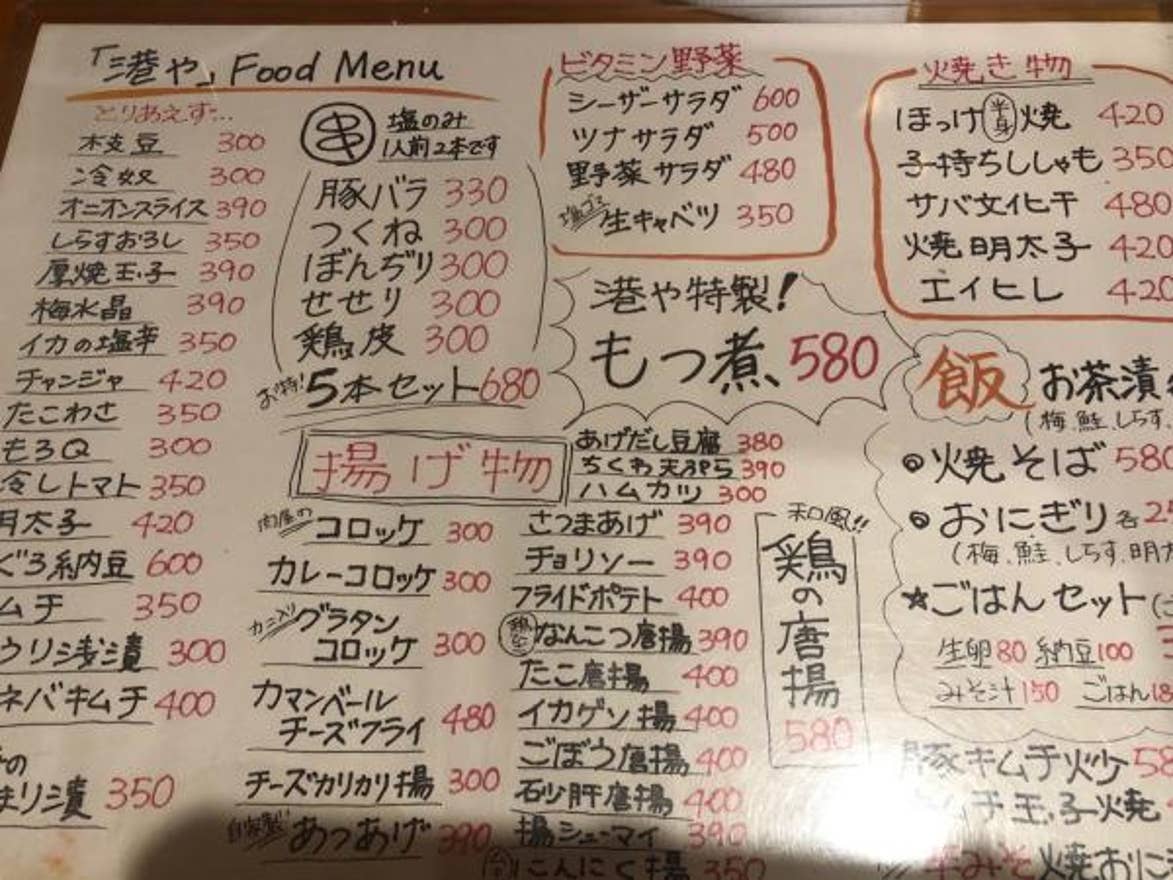 「港や」Food Menu
とりあえず…
枝豆 300
冷奴 300
オニオンスライス 390
しらすおろし 350
厚焼玉子 390
梅水晶 390
イカの塩辛 350
チャンジャ 420
たこわさ 350
もろQ 300
冷しトマト 350
明太子 420
ぐろ納豆 600
ムチ 350
ウリ浅漬 300
ネバキムチ 400
の
まり漬 350
串 塩のみ
1人前2本です
豚バラ 330
つくね 300
ぼんぢり 300
せせり 300
鶏皮 300
お特!5本セット 680
揚げ物
肉屋のコロッケ 300
カレーコロッケ 300
カニ入りグラタン
コロッケ 300
カマンベール
チーズフライ 480
チーズカリカリ揚 300
自家製!あつあげ 390
あげだし豆腐 380
ちくわ天ぷら 390
ハムカツ 300
さつまあげ 390
チョリソー 390
フライドポテト 400
なんこつ唐揚 390
たこ唐揚 400
イカゲソ揚 400
ごぼう唐揚 400
砂肝唐揚 400
揚シューマイ 390
にんにく揚 350
和風!!
鶏の唐揚
580
ビタミン野菜
シーザーサラダ 600
ツナサラダ 500
野菜サラダ 480
塩ゴマ 生キャベツ 350
港や特製!
もつ煮 580
焼き物
ほっけ半身焼 420
子持ちししゃも 350
サバ文化干 480
焼明太子 420
エイヒレ 420
飯 お茶漬
(梅、鮭、しらす
◎焼そば 580
◎おにぎり各 2
(梅、鮭、しらす、明太
☆ごはんセット
生卵 80 納豆 100
みそ汁 150 ごはん 18
豚キムチ炒 58
ムチ玉子焼
辛みそ焼おに